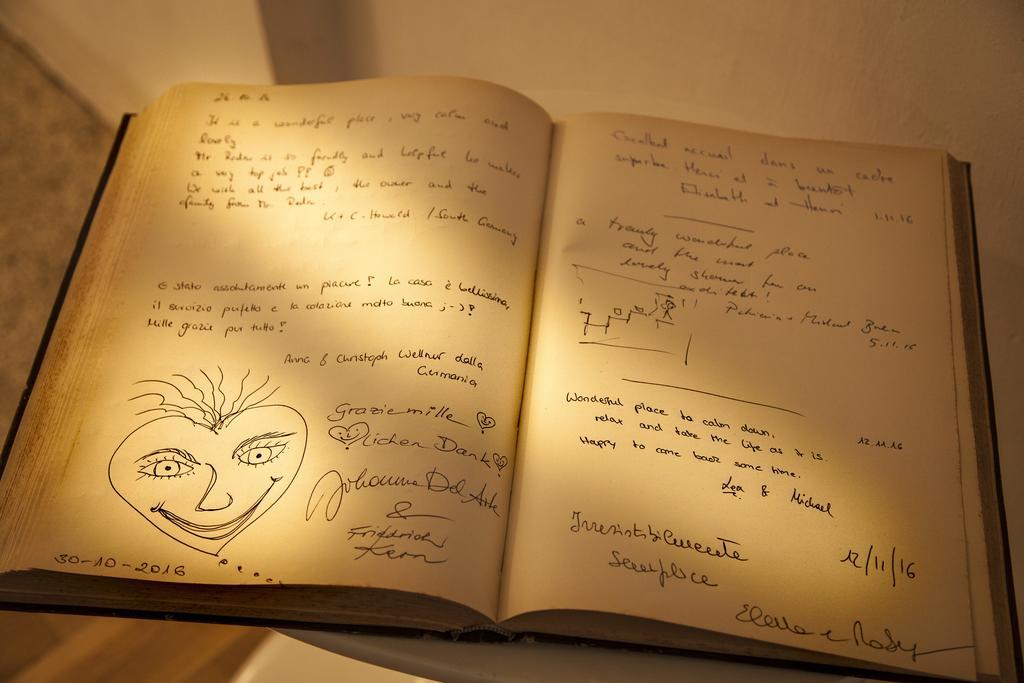 It is a wonderful place, very calm and
lovely.
Mr is so friendly and helpful he makes
a very top job !!
We wish all the best, the owner and the
family from Mr.
K + C. Howald / South Germany
E stato assolutamente un piacere! La casa è bellissima,
il servizio perfetto e la colazione molto buona ;-)!
Mille grazie per tutto!
Anna & Christoph Wellner dalla
Germania
Grazie mille
lichen Dank
Johanna Del Arte
&
Friedrich
Kern
30-10-2016
Excellent accueil dans un cadre
superbe. Merci et à bientôt
Elisabeth et Henri
1.11.16
a truly wonderful place
and the most
lovely shower for an
architekt!
Patricia + Michael
5.11.16
Wonderful place to calm down,
relax and take the life as it is.
12.11.16
Happy to come back some time.
Lea & Michael
Irresistibilmente
Semplice
12/11/16
Elena e